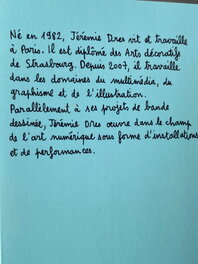 Né en 1982, Jérémie Dres vit et travaille
à Paris. Il est diplômé des Arts décoratifs
de Strasbourg. Depuis 2007, il travaille
dans les domaines du multimédia, du
graphisme et de l'illustration.
Parallèlement à ses projets de bande
dessinée, Jérémie Dres œuvre dans le champ
de l'art numérique sous forme d'installations
et de performances.